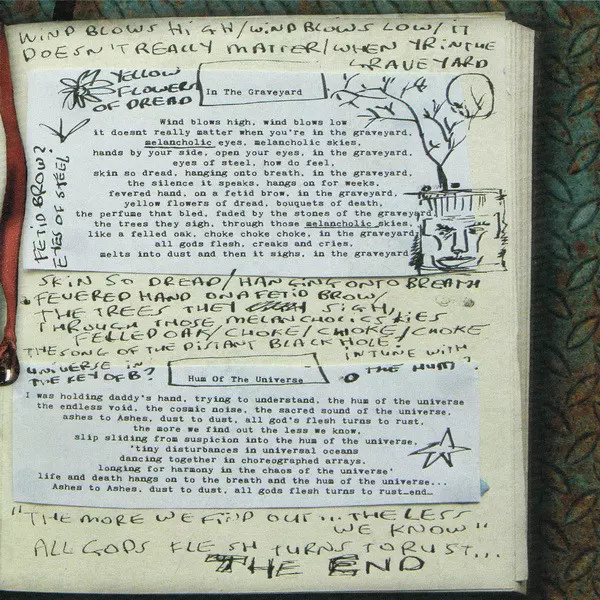 WIND BLOWS HIGH/WIND BLOWS LOW/IT
DOESN'T REALLY MATTER/WHEN YR IN THE
GRAVEYARD
YELLOW
FLOWERS
OF DREAD
In The Graveyard
Wind blows high, wind blows low
it doesnt really matter when you're in the graveyard,
melancholic eyes, melancholic skies,
hands by your side, open your eyes, in the graveyard,
eyes of steel, how do feel,
skin so dread, hanging onto breath, in the graveyard,
the silence it speaks, hangs on for weeks,
fevered hand, on a fetid brow, in the graveyard,
yellow flowers of dread, bouquets of death,
the perfume that bled, faded by the stones of the graveyard
the trees they sigh, through those melancholic skies,
like a felled oak, choke choke choke, in the graveyard
all gods flesh, creaks and cries,
melts into dust and then it sighs, in the graveyard
FETID BROW?
EYES OF STEEL?
SKIN SO DREAD/HANGING ONTO BREATH
FEVERED HAND ON A FETID BROW/
THE TREES THEY SIGH,
THROUGH THOSE MELANCHOLIC SKIES
FELLED OAK/CHOKE/CHOKE/CHOKE
THE SONG OF THE DISTANT BLACK HOLE?
UNIVERSE IN
THE KEY OF B?
IN TUNE WITH
THE HUM?
Hum Of The Universe
I was holding daddy's hand, trying to understand, the hum of the universe
the endless void, the cosmic noise, the sacred sound of the universe,
ashes to Ashes, dust to dust, all god's flesh turns to rust,
the more we find out the less we know,
slip sliding from suspicion into the hum of the universe,
'tiny disturbances in universal oceans
dancing together in choreographed arrays,
longing for harmony in the chaos of the universe'
life and death hangs on to the breath and the hum of the universe...
Ashes to Ashes, dust to dust, all gods flesh turns to rust_end_
"THE MORE WE FIND OUT... THE LESS
WE KNOW"
ALL GODS FLESH TURNS TO RUST...
THE END